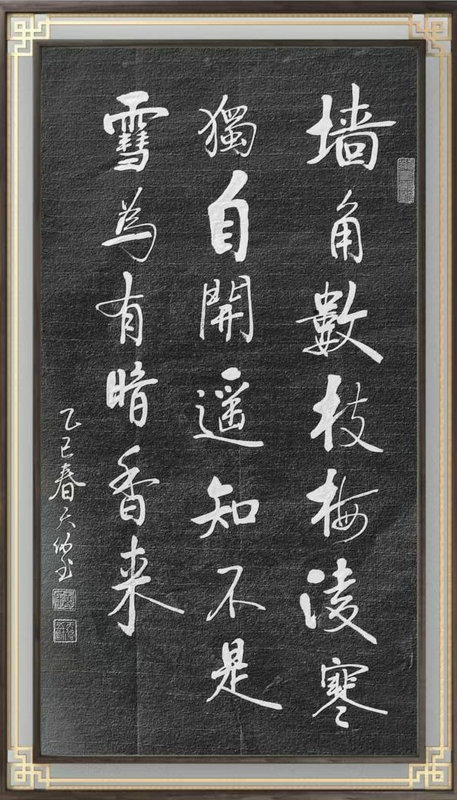 墙角數枝梅凌寒
獨自開遥知不是
雪為有暗香来
乙巳春